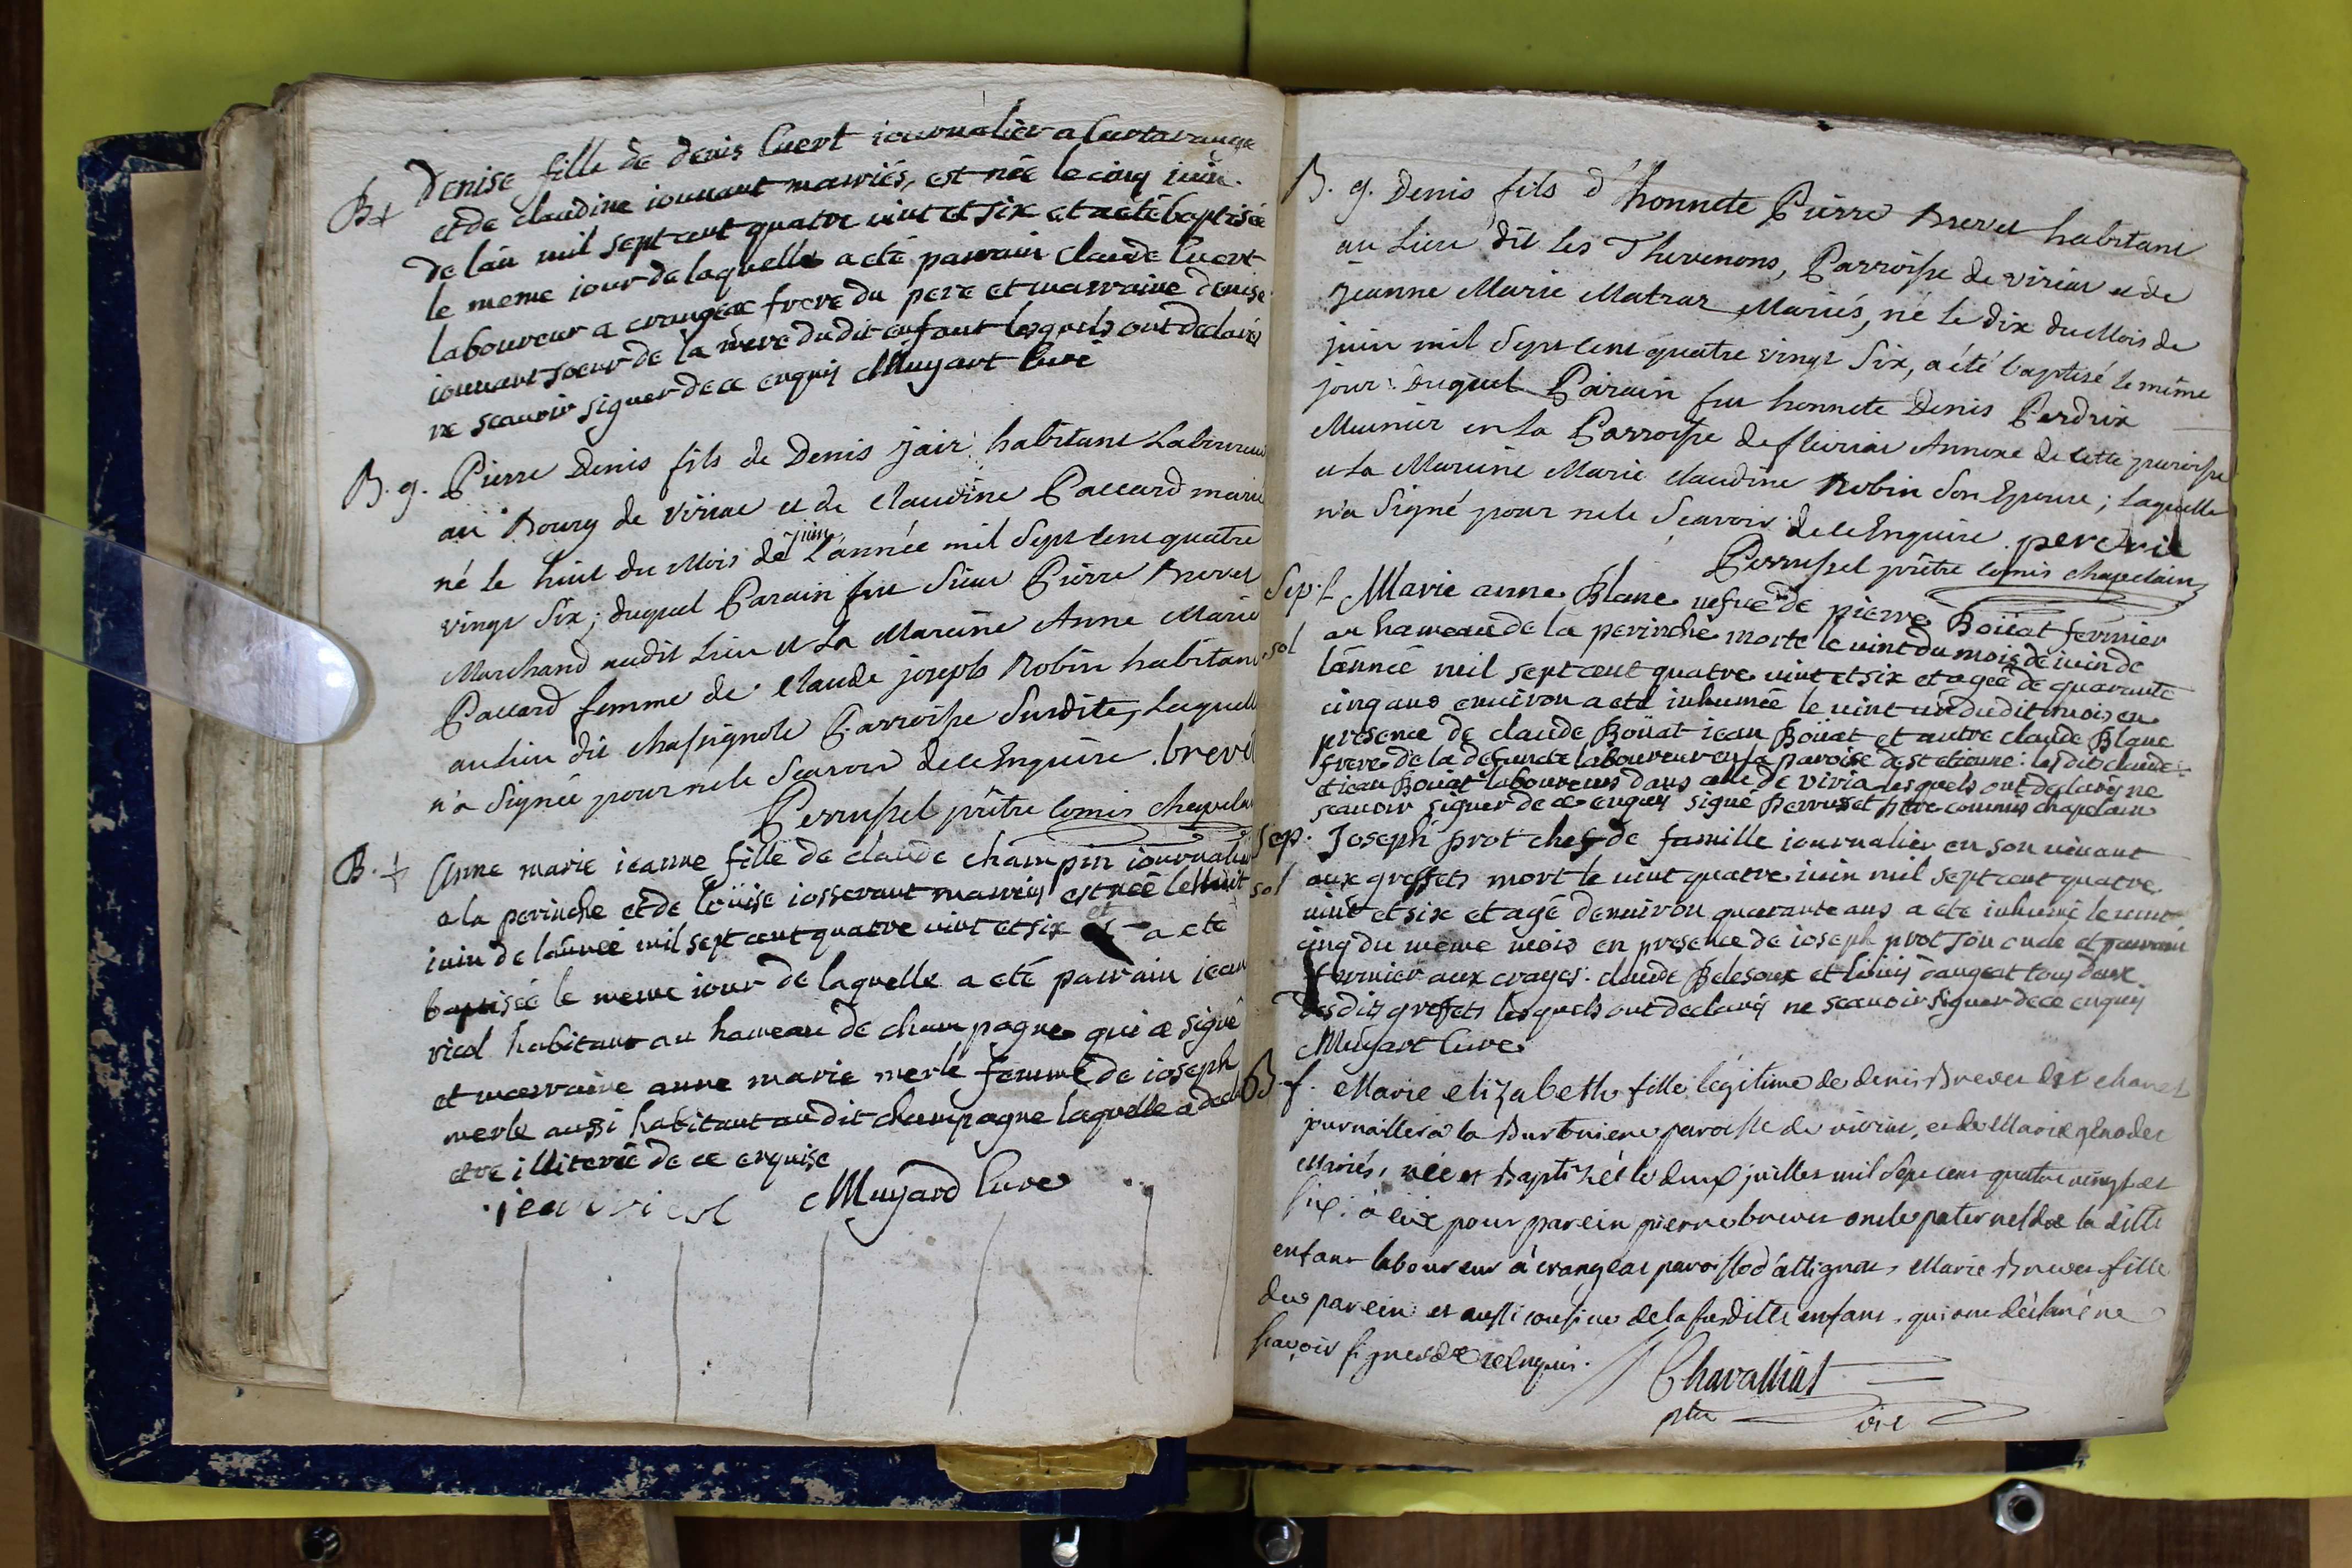 B+ Denise fille de denis Cuert iournalier a
et de claudine iounant mariés, est née le cinq iuin
de lan mil sept cent quatre vint et six et a eté baptisée
le meme iour de laquelle a eté parrain claude Cuert
laboureur a crangeac frere du pere et marraine denise
iounant soeur de la mere dudit enfant lesquels ont declarés
ne scauoir signer de ce enquis Muyart Curé
B. g. Pierre Denis fils de Denis jair habitant Laboureur
au Bourg de viriac et de Claudine Paccard mariés
né le huit du Mois de juin L'année mil Sept cent quatre
vingt Six; duquel Parain fut Sieur Pierre Brevet
Marchand audit Lieu et La Mareine Anne Marie
Paccard femme de Claude joseph Robin habitant
au Lieu dit chassignole Parroisse Susdite, Laquelle
n'a Signée pour ne le Scavoir de ce Enquise. brevet
Perrussel prêtre Comis chapelain
B. + Anne marie ieanne fille de claude champin iournalier
a la perinche et de loüise iosserant mariés est née le huit
iuin de lannée mil sept cent quatre vint et six et a eté
baptisée le meme iour de laquelle a eté parrain iean
viol habitant au hameau de champagne qui a signé
et marraine anne marie merle femme de ioseph
merle aussi habitant audit champagne laquelle a declaré
etre illiterée de ce enquise
jean viol Muyard Curé
B. g. Denis fils d'honnete Pierre Brevet habitant
au Lieu dit les Thevenons, Parroisse de viriac et de
Jeanne Marie Matraz Mariés, né le dix du Mois de
juin mil Sept cent quatre vingt Six, a été baptisé le même
jour: Duquel Parain fut honnete Denis Perdrix
Meunier en La Parroisse de fleuriac Annexe de cette paroisse
et La Mareine Marie Claudine Robin Son Epouse; laquelle
n'a Signé pour ne le Scavoir de ce Enquise. perdrix
Perrussel prêtre Comis chapelain
Sep.t Marie anne Blanc vefue de pierre Boüat fermier
au hameau de la perinche morte le uint du mois de iuin de
sol lénneé mil sept cent quatre uint et six et agée de quarante
cinq ans enuiron a eté inhumée le uint un dudit mois en
presence de claude Boüat iean Boüat et autre claude Blanc
frere de la defunte laboureur en la paroise de st etienne. lesdits claude
et iean Boüat laboureurs dans celle de viria lesquels ont declarés ne
scauoir signer de ce enquis signé Perrusset pretre commis chapelain
Sep. Joseph prot chef de famille iournalier en son uiuant
sol aux greffets mort le uint quatre iuin mil sept cent quatre
uint et six et agé denuiron quarante ans a ete inhumé le uint
cinq du meme mois en presence de ioseph prot son oncle et parrain
fermier aux crayes. claude Belesoux et loüis dangeat tous deux
desdits greffets lesquels ont declarés ne scauoir signer de ce enquis
Muyart Curé
B f. Marie elizabeth fille légitime de denis Brevet dit
journallier à la paroisse de viriac, et de Marie
Mariés, née et Baptizée le deux juillet mil Sept cent quatre vingt et
six. à eüe pour parein pierre brevet oncle paternel de la ditte
enfant laboureur à crangeac paroisse d'attignat, Marie Brevet fille
du parein et aussi cousine de la susditte enfant, qui ont déclaré ne
sçavoir signer de ce enquis.
Chavalliat
ptre vic